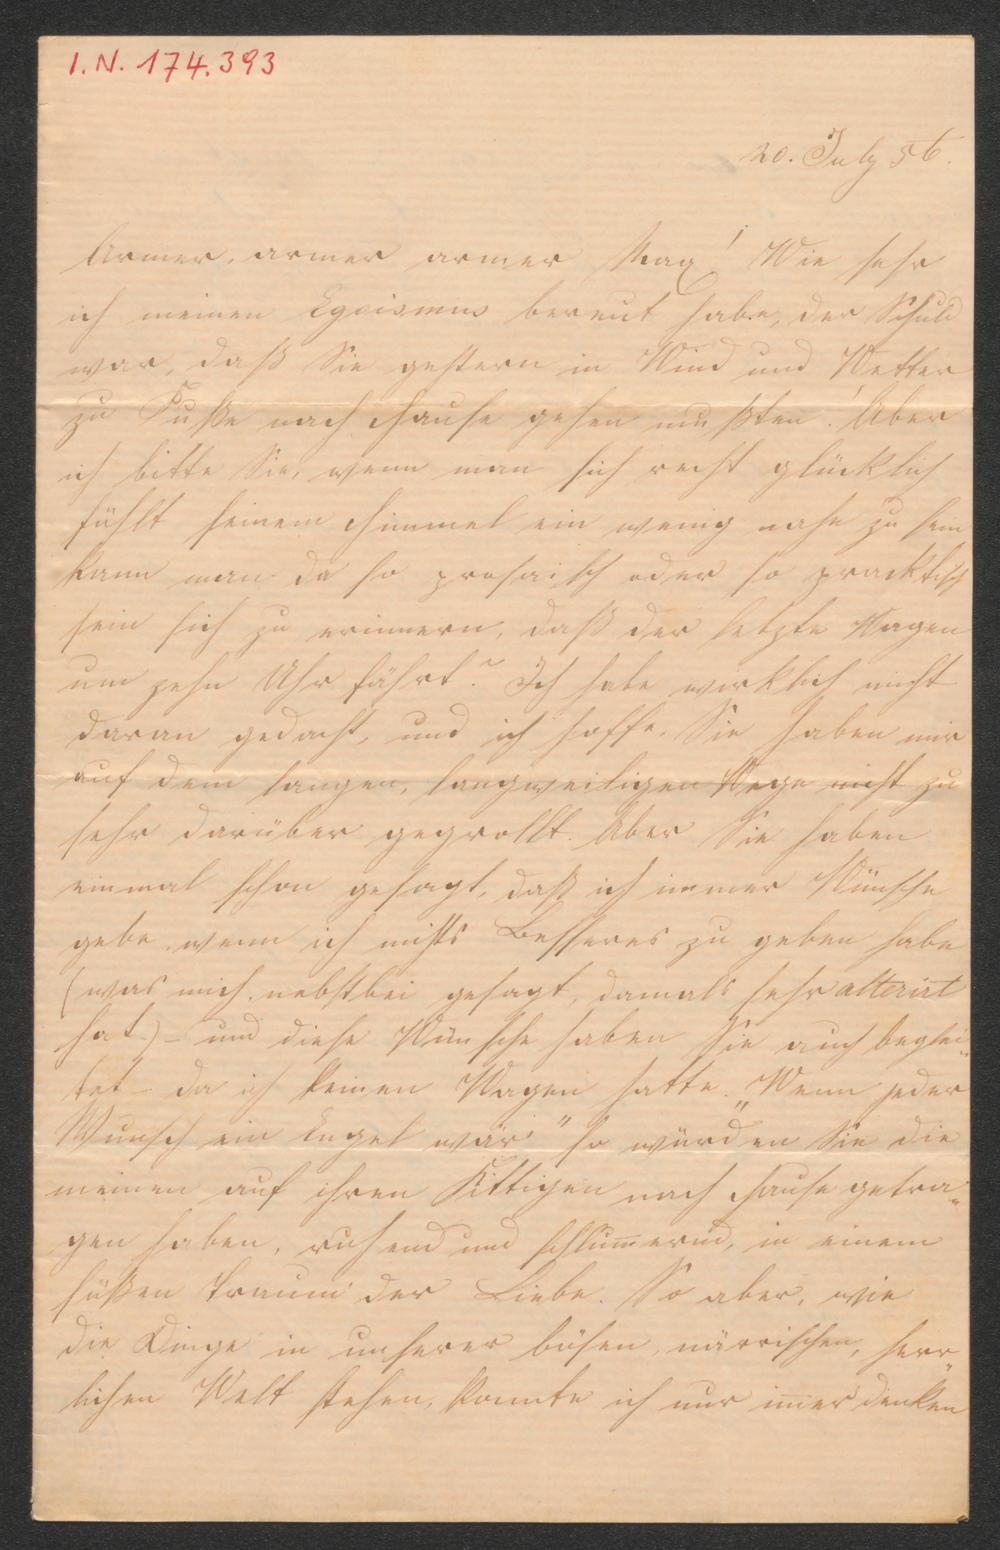 I. N. 174.393
20. July 56.
Armer, armer armer Max! Wie sehr
ich meinen Egoismus bereut habe, der Schuld
war, daß Sie gestern in Wind und Wetter
zu Fuße nach Hause gehen mußten! Aber
ich bitte Sie, wenn man sich recht glücklich
fühlt seinem Himmel ein wenig nahe zu sein
kann man da so prosaisch oder so pracktisch
sein sich zu erinnern, daß der letzte Wagen
um zehn Uhr fährt? Ich habe wirklich nicht
daran gedacht, und ich hoffe, Sie haben mir
auf dem langen, langweiligen Wege nicht zu
sehr darüber gegrollt. Aber Sie haben
einmal schon gesagt, daß ich immer Wünsche
gebe, wenn ich nichts Besseres zu geben habe
(was mich, nebstbei gesagt, damals sehr alterirt
hat) – und diese Wünsche haben Sie auch beglei„
tet – da ich keinen Wagen hatte. „Wenn jeder
Wunsch ein Engel wär“ so würden Sie die
meinen auf ihren Fittigen nach Hause getra„
gen haben, ruhend und schlum̅ernd, in einem
süßen Traum der Liebe. So aber, wie
die Dinge in unserer bösen, närrischen, herr„
lichen Welt stehen, konnte ich nur im̅er denken